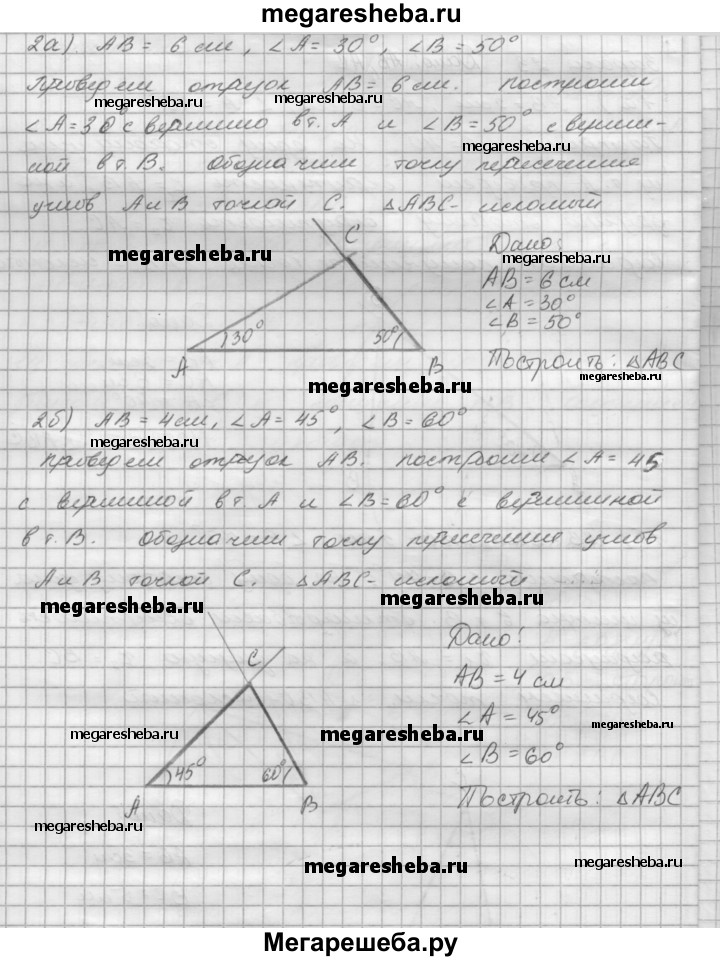 megaresheba.ru
2а). AB = 6 см, ∠A = 30°, ∠B = 50°
Проведем отрезок AB = 6 см. построим
megaresheba.ru megaresheba.ru
∠A = 30° с вершино в т. A и ∠B = 50° с верши-
megaresheba.ru
ной в т. B. Обозначим точку пересечение
углов A и B точкой C. △ABC - искомый
megaresheba.ru
C
30°
50°
A
B
Дано:
megaresheba.ru
AB = 6 см
∠A = 30°
∠B = 50°
Построить: △ABC
megaresheba.ru
megaresheba.ru
2б) AB = 4 см, ∠A = 45°, ∠B = 60°
megaresheba.ru
проведем отрезок AB. построим ∠A = 45
с вершиной в т A и ∠B = 60° с вершиной
в т. B. Обозначим точку пересечение углов
A и B точкой C. △ABC - искомый
megaresheba.ru megaresheba.ru
C
45°
60°
A
B
megaresheba.ru
megaresheba.ru
Дано:
AB = 4 см
∠A = 45°
megaresheba.ru
∠B = 60°
Построить: △ABC
megaresheba.ru
megaresheba.ru
megaresheba.ru
Мегарешеба.ру